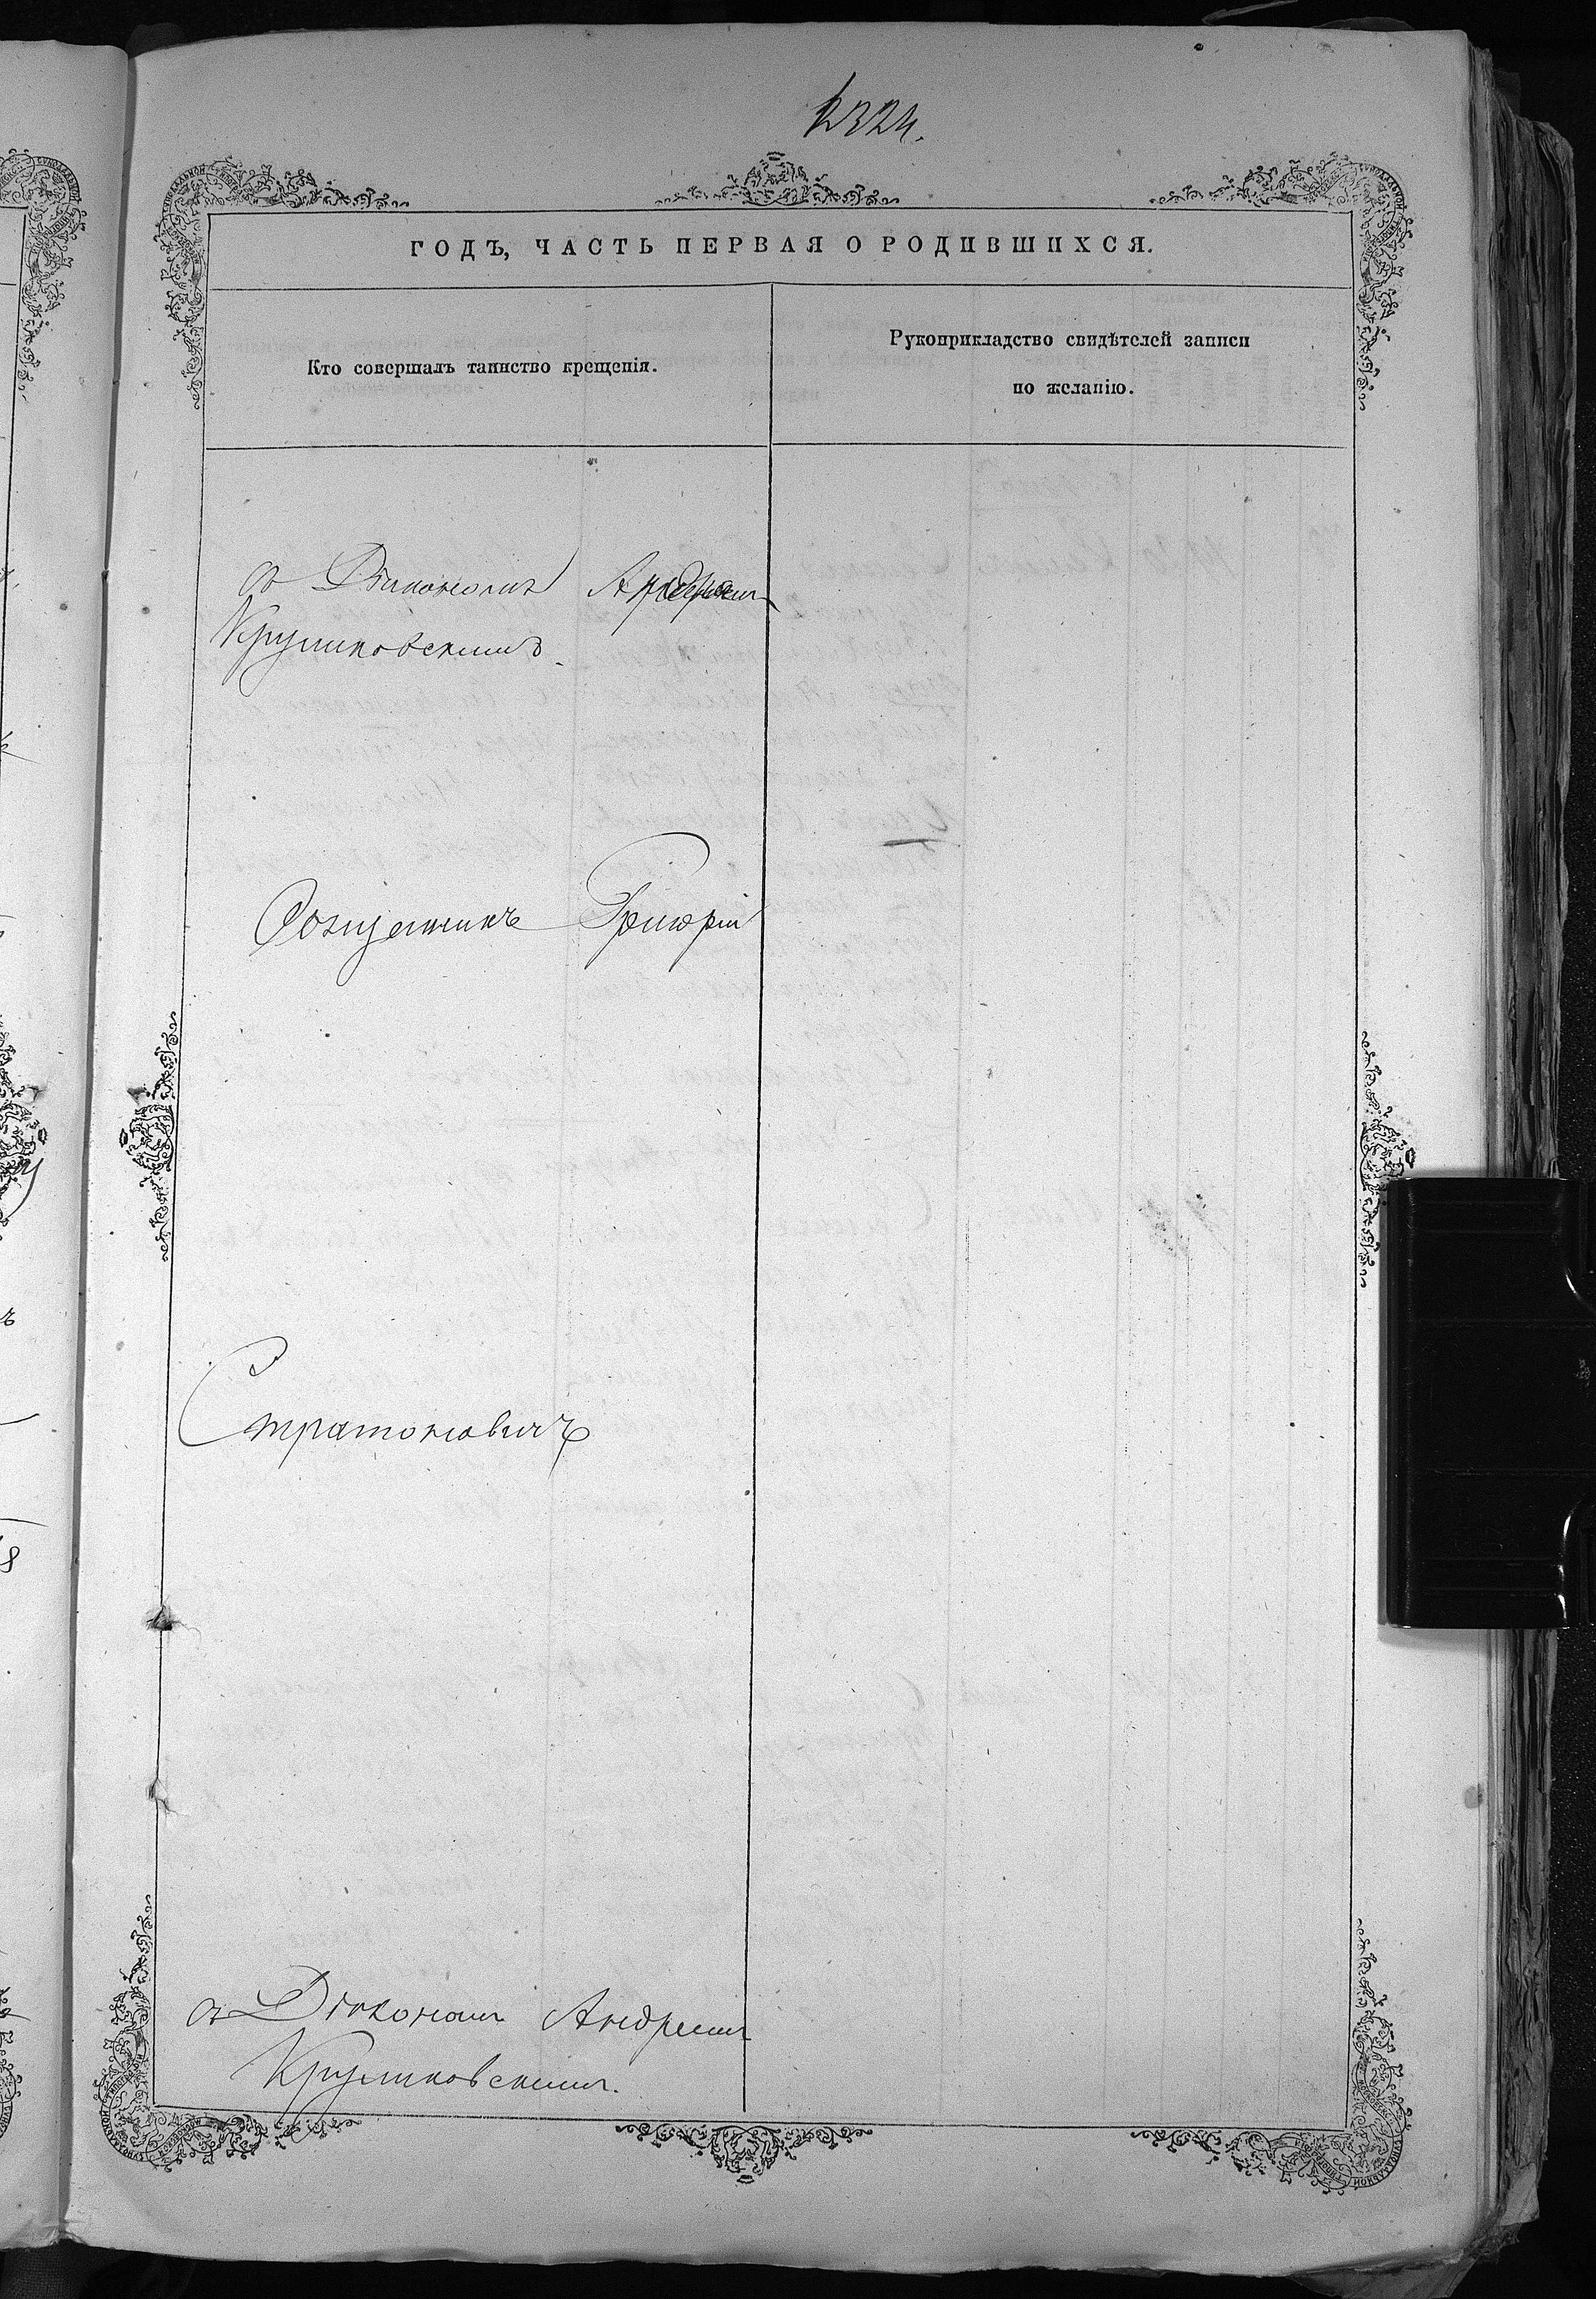 2324.
ГОДЪ, ЧАСТЬ ПЕРВАЯ О РОДИВШИХСЯ.
Кто совершалъ таинство крещенія.
Рукоприкладство свидѣтелей записи
по желанію.
съ Діакономъ Андреемъ
Крушковскимъ.
Священникъ Григорій
Стратоновичъ
съ Діакономъ Андреемъ
Крушковскимъ.